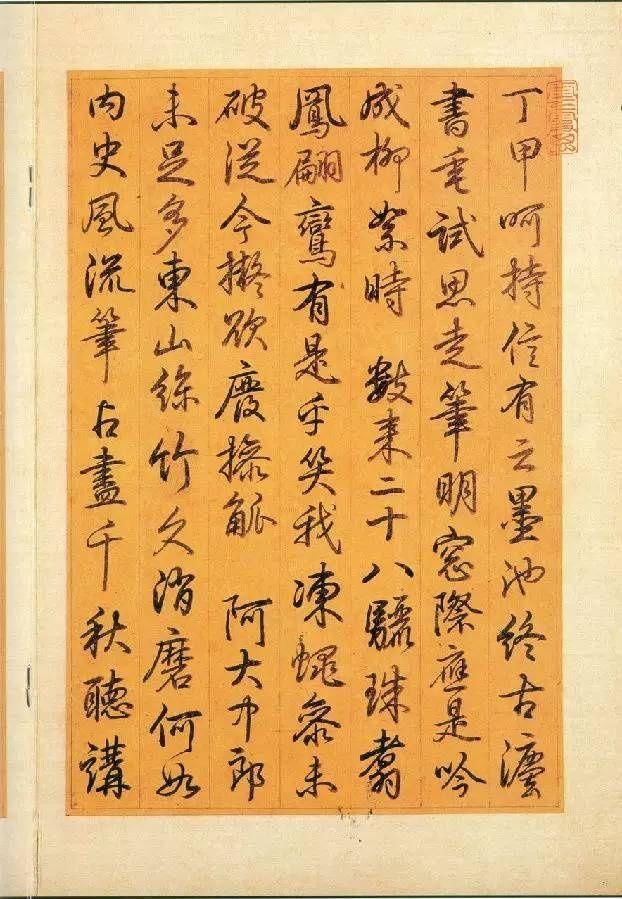 丁甲呵持信有云墨池終古瀀
書毫試思走筆明窓際應是吟
成柳絮時 數來二十八驪珠翥
鳳翩鸞有是乎笑我凍蠅參未
破從今擬欲廢操觚 阿大中郎
未足多東山絲竹久消磨何如
内史風流筆占盡千秋聽講